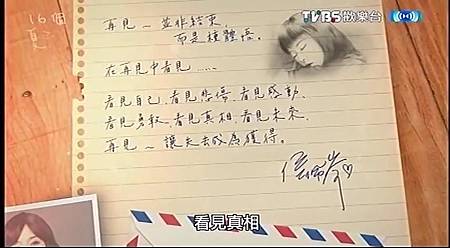 16個夏天
TVBS歡樂台
再見～並非結束，
而是種體悟。
在再見中看見……
看見自己、看見悲傷、看見感動、
看見勇敢、看見真相、看見未來。
再見～讓失去成為獲得。
看見真相